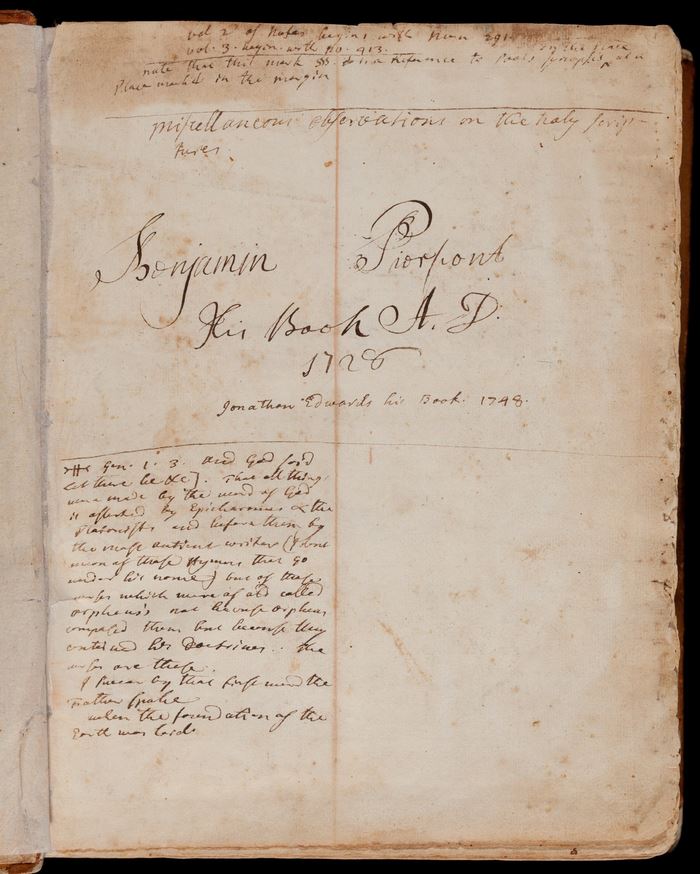 vol 2 of notes begins with Num 291.
vol. 3. begin. with no. 413.
note that this mark §§. is in Reference to Pools synopsis
in the place
Place mark'd in the margin
miscellaneous observations on the holy scrip-
tures.
Benjamin Pierpont
His Book A. D.
1728
Jonathan Edwards his Book. 1748.
Gen. 1. 3. and God said
Let there be &c]. That all things
were made by the word of God
is asserted by Epicharmus & the
Platonists and before them by
the most antient writers (I dont
mean of those Hymns that go
under his name) but of those
verses which were of old called
orpheus's not because orpheus
composed them but because they
contained his Doctrines. The
verses are these.
I swear by that first word the
Father spake
when the foundation of the
Earth was laid.